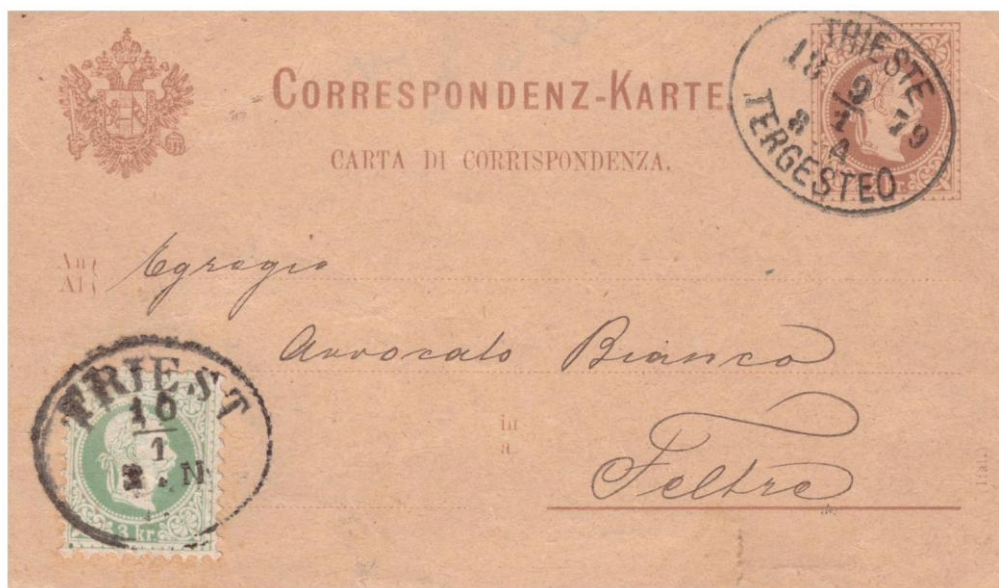 CORRESPONDENZ-KARTE
CARTA DI CORRISPONDENZA.
TRIESTE
18 9/1 79
8 A
TERGESTEO
kr.
An
Al
Egregio
Avvocato Bianco
in
a
Feltre
TRIEST
10
1
N
3 kr.
Ital.